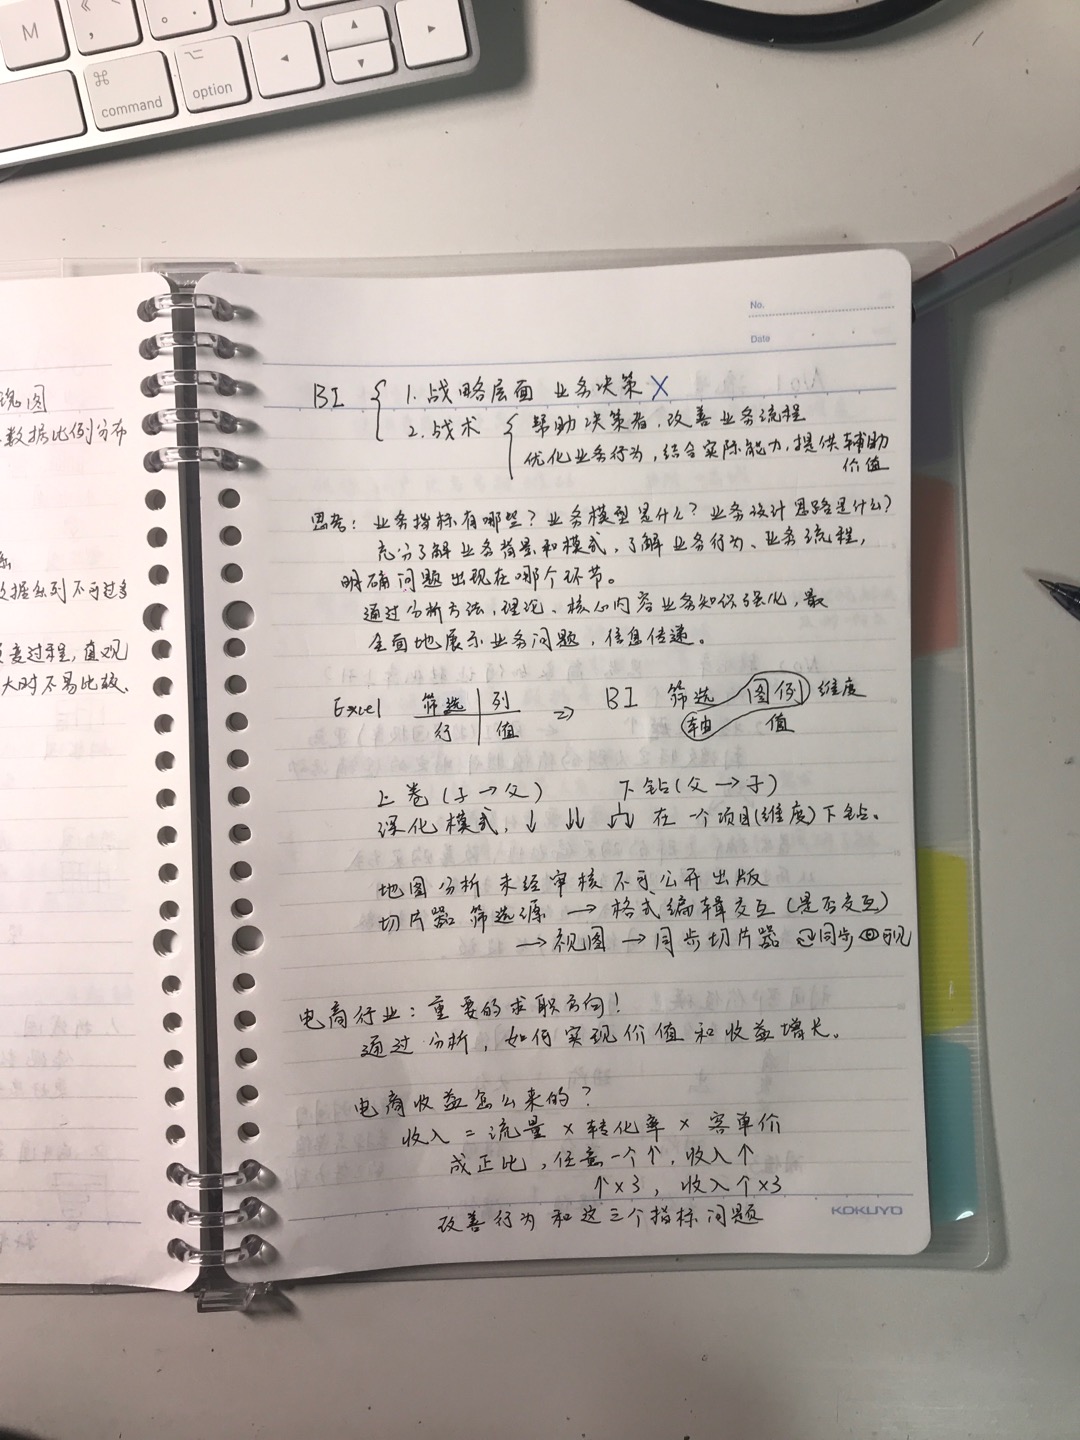 M
command
option
No.
Date
瑰图
数据比例分布
数据系列不可过多
变过程,直观
大时不易比较、
BI { 1. 战略层面 业务决策 X
2. 战术 { 帮助决策者,改善业务流程
优化业务行为,结合实际能力,提供辅助
价值
思考:业务指标有哪些?业务模型是什么?业务设计思路是什么?
充分了解业务背景和模式,了解业务行为、业务流程,
明确问题出现在哪个环节。
通过分析方法,理论、核心内容业务知识强化,最
全面地展示业务问题,信息传递。
Excel 筛选 列 ⇒ BI 筛选 图例 维度
行 值 轴 值
上卷(子→父) 下钻(父→子)
深化模式,↓ ↓↓ 在一个项目(维度)下钻。
地图分析未经审核不可公开出版
切片器 筛选源 → 格式编辑交互(是否交互)
→ 视图 → 同步切片器 同步 可见
电商行业:重要的求职方向!
通过分析,如何实现价值和收益增长。
电商收益怎么来的?
收入 = 流量 × 转化率 × 客单价
成正比,任意一个↑,收入↑
↑×3,收入个×3
改善行为和这三个指标问题
KOKUYO